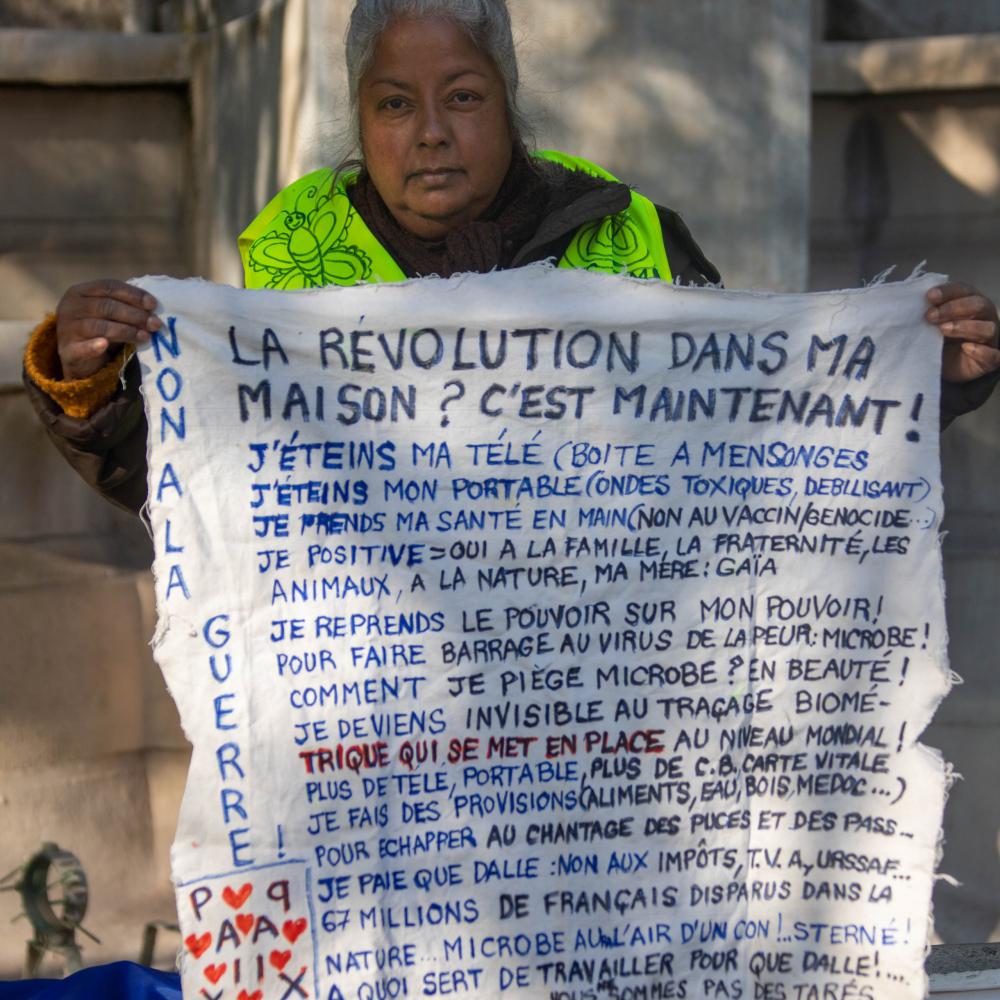 NON A LA GUERRE !
LA RÉVOLUTION DANS MA
MAISON ? C'EST MAINTENANT !
J'ÉTEINS MA TÉLÉ (BOITE A MENSONGES
J'ÉTEINS MON PORTABLE (ONDES TOXIQUES, DEBILISANT)
JE PRENDS MA SANTÉ EN MAIN (NON AU VACCIN/GENOCIDE...)
JE POSITIVE = OUI A LA FAMILLE, LA FRATERNITÉ, LES
ANIMAUX, A LA NATURE, MA MÈRE : GAÏA
JE REPRENDS LE POUVOIR SUR MON POUVOIR !
POUR FAIRE BARRAGE AU VIRUS DE LA PEUR : MICROBE !
COMMENT JE PIÈGE MICROBE ? EN BEAUTÉ !
JE DEVIENS INVISIBLE AU TRAÇAGE BIOMÉ-
TRIQUE QUI SE MET EN PLACE AU NIVEAU MONDIAL !
PLUS DE TELE, PORTABLE, PLUS DE C.B, CARTE VITALE
JE FAIS DES PROVISIONS (ALIMENTS, EAU, BOIS, MEDOC...)
POUR ECHAPPER AU CHANTAGE DES PUCES ET DES PASS...
JE PAIE QUE DALLE : NON AUX IMPÔTS, T.V.A, URSSAF...
67 MILLIONS DE FRANÇAIS DISPARUS DANS LA
NATURE... MICROBE AURA L'AIR D'UN CON !.. STERNÉ !
A QUOI SERT DE TRAVAILLER POUR QUE DALLE !...
NOUS NE SOMMES PAS DES TARÉS
P ♥ 9
♥ A A ♥
♥ I I ♥
X ♥ X